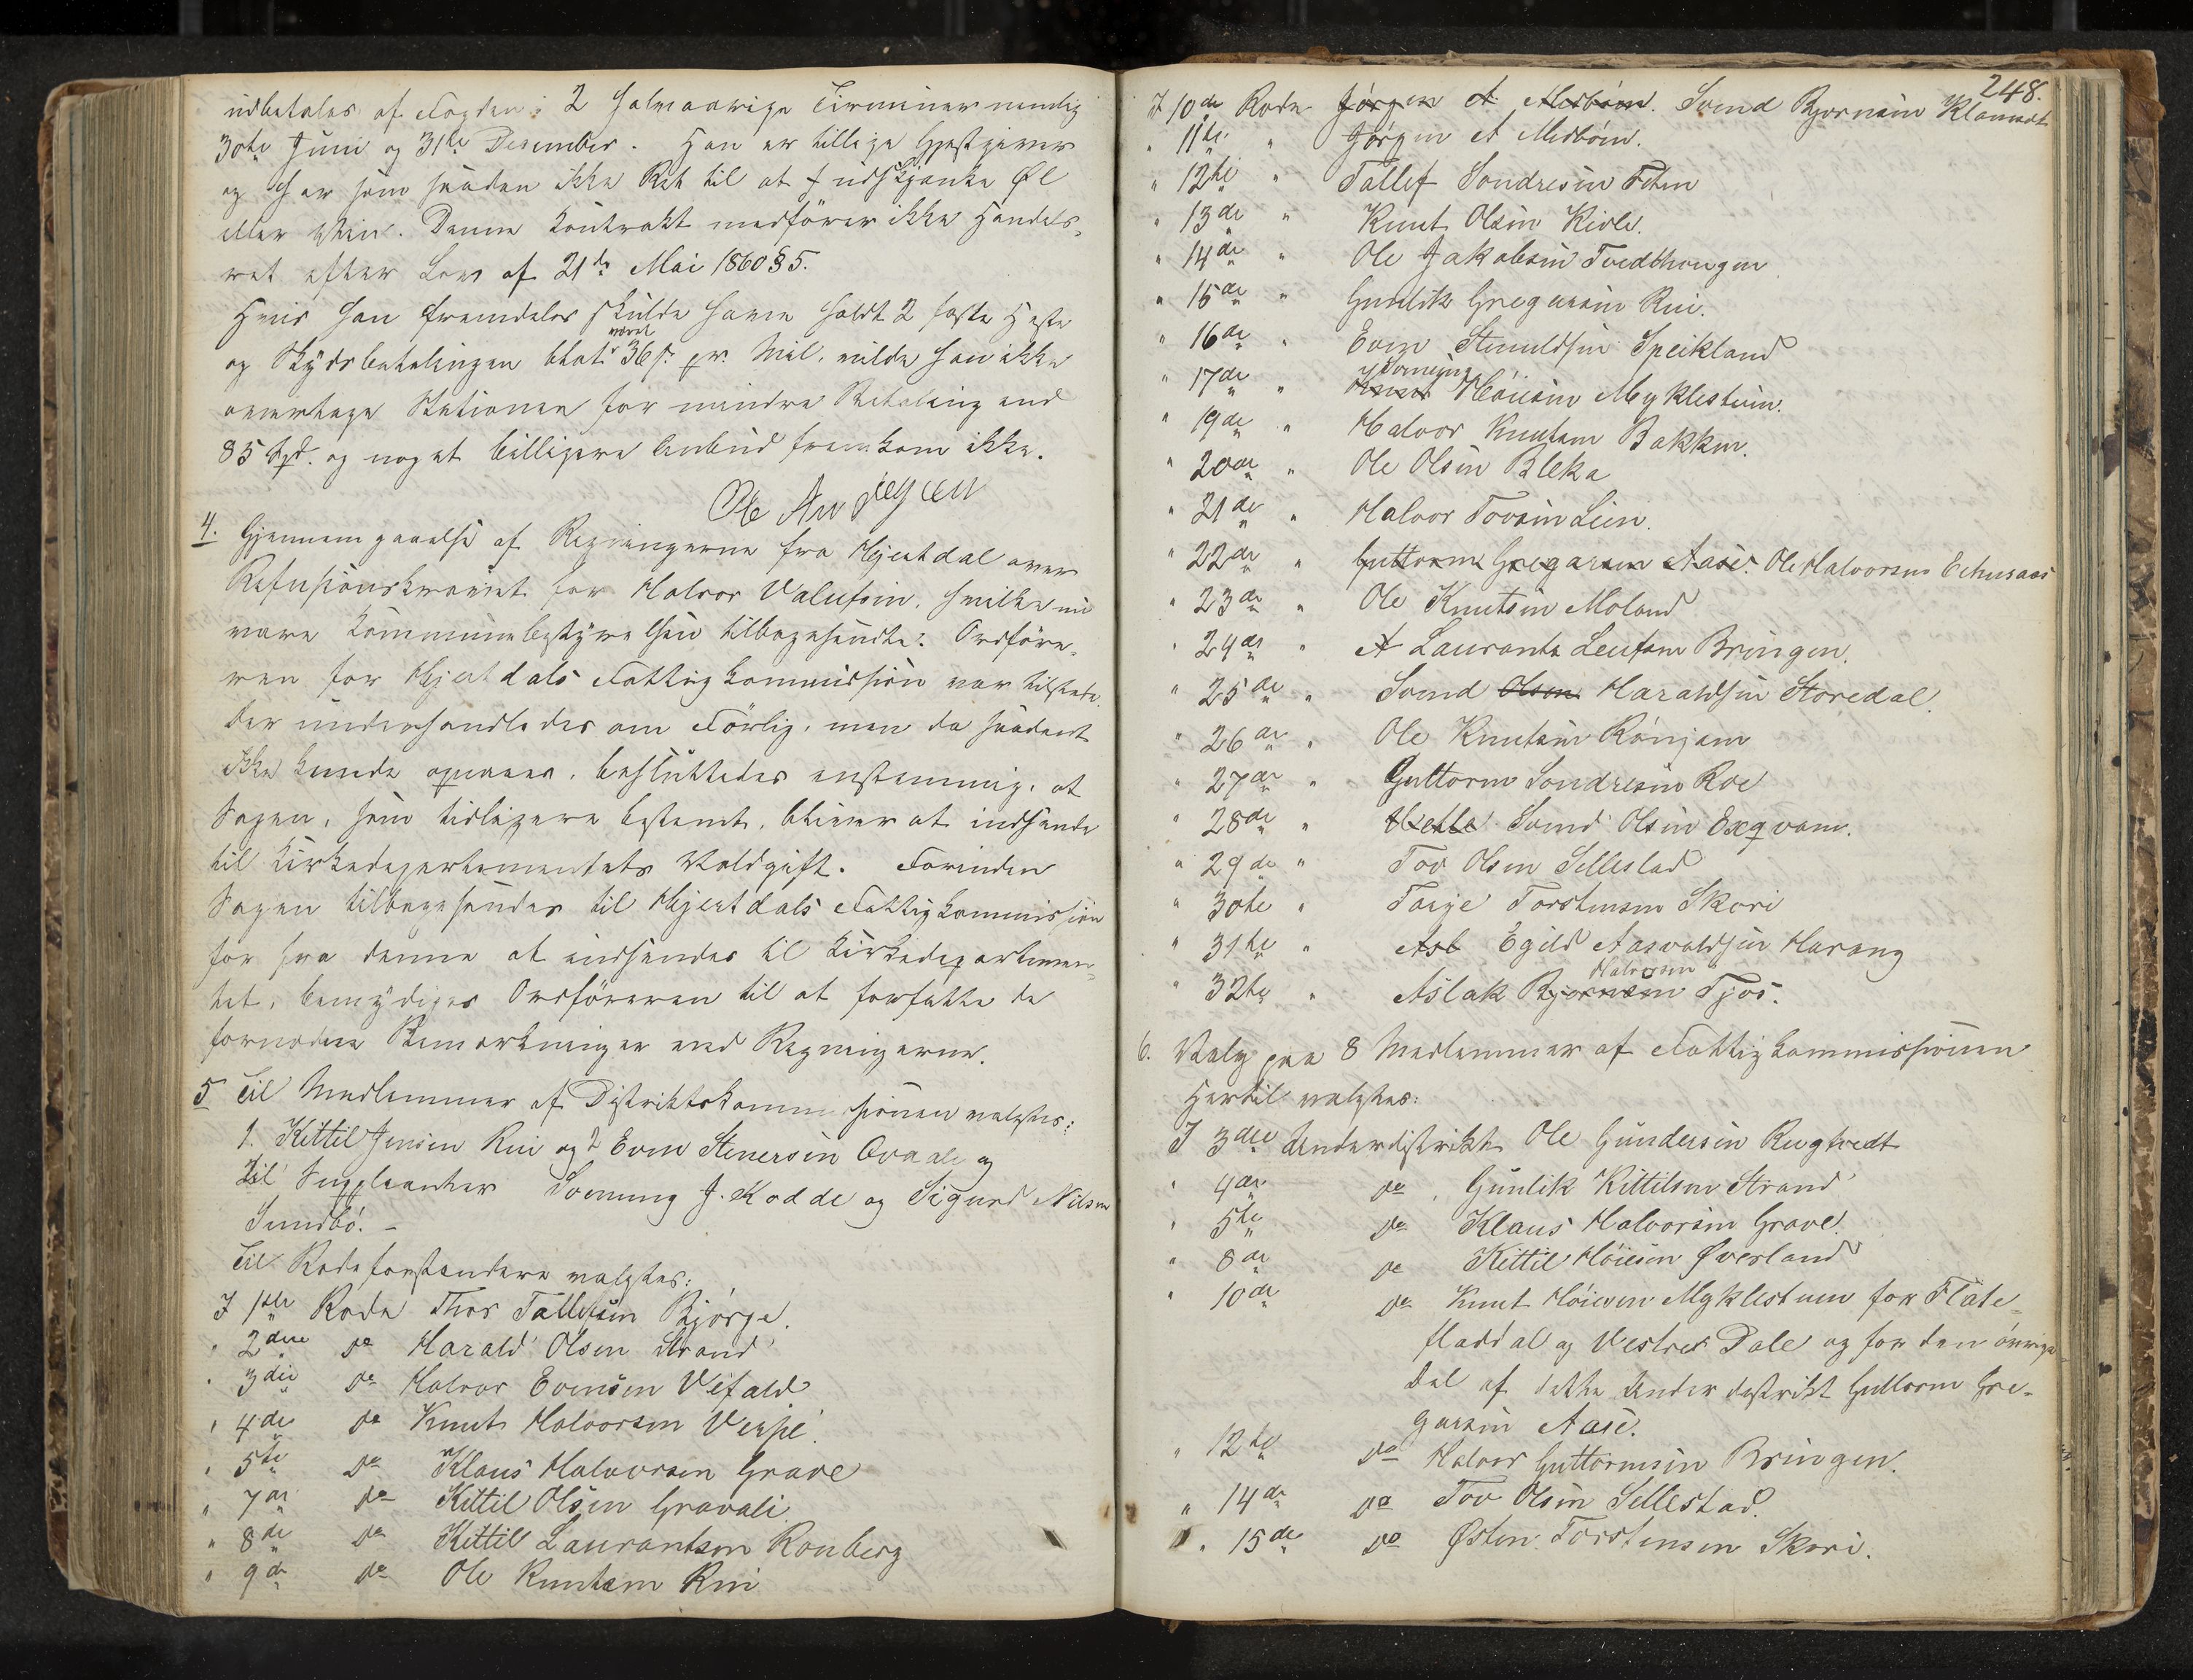 udbetales af Fogden i 2 halvaarige Terminer nemlig
30te Juni og 31te Desember. Han er tillige Gjestgiver
og har som saadan ikke Ret til at udskjænke Øl
eller Vin. Denne Kontrakt medfører ikke Handels-
ret efter Lov af 21de Mai 1860 § 5.
Hvis han fremdeles skulde have holdt 2 faste Heste
og Skydsbetalingen blot været 36 s. pr. Mil, vilde han ikke
overtage Stationen for mindre Betaling end
85 Spd. og noget billigere Anbud fremkom ikke.
Ole
4. Gjennemgaaelse af Regningerne fra Hjertdal over
Refusionskravet for Halvor Valufsin, hvilke nu
vare Kommunebestyrelsen tilbagesendte. Ordføre-
ren for Hjertdals Fattigkommission var tilstede.
Der underhandledes om Forlig, men da saadant
ikke kunde opnaaes, besluttedes enstemmig, at
Sagen, som tidligere bestemt, bliver at indsende
til Kirkedepartementets Voldgift. Forinden
Sagen tilbagesendes til Hjertdals Fattigkommission
for fra denne at indsendes til Kirkedepartemen-
tet, bemyndiges Ordføreren til at forfatte de
fornødne Bemærkninger ved Regningerne.
5 Til Medlemmer af Distriktskommissionen valgtes:
1. Kittil Jensen Rui og 2 Even Stenersin Ovaale og
Til Suppleanter Sveinung J. Kodde og Sigurd Nilsen
Sundbö. -
Til Rodeforstandere valgtes:
I 1ste Rode Thor Tallefsen Bjørge.
" 2den do Harald Olsen Strand
" 3die do Halvor Evensen Vefald
" 4de do Knut Halvorsen Verpe
" 5te do Klaus Halvorsen Grave
" 7de do Kittil Olsen Gravali
" 8de do Kittil Laurantsen Ronberg
" 9de do Ole Knutsen Rui
248.
I 10de Rode Jörgen A Medböen. Svend Bjørnsen Klomset
" 11te " Jörgen A Medböen.
" 12te " Tallef Sondresen
" 13de " Knut Olsen Kivle.
" 14de " Ole Jakobsen Tvedthaugen
" 15de " Gunlik Gregarsen Rui.
" 16de " Even Stenuldsen Speikland
" 17de " Sveinung Höiesen Myklestuen.
" 19de " Halvor Knutsen Bakken.
" 20de " Ole Olsen Bleka
" 21de " Halvor Tovsen Lien.
" 22de " Guttorm Gregarsen Aase. Ole Halvorsen
" 23de " Ole Knutsen Moland
" 24de " A Laurants Leufsen Bringen.
" 25de " Svend Olsen Haraldsen Storedal.
" 26de " Ole Knutsen Rönjom
" 27de " Guttorm Sondresen Roe
" 28de " Vetle Svend Olsen Exqvam.
" 29de " Tov Olsen Sellestad
" 30te " Tarje Torstensen Skori
" 31te " Asl Egild Aasvaldsen Harang
" 32te " Aslak Bjørnsen Halvorsen Tjös.
6. Valg paa 8 Medlemmer af Fattigkommissionen
Hertil valgtes:
I 3die Underdistrikt Ole Gundersen Rugtvedt
" 4de do. Gunlik Kittilsen Strand
" 5te do Klaus Halvorsen Grave.
" 8de do Kittil Höiesen Överland
" 10de do Knut Höiesen Myklestuen for Flate-
fladdal og Vestre Dale og for den övrige
Del af dette Underdistrikt Guttorm Gre-
garsen Aase.
" 12te do Halvor Guttormsen Bringen.
" 14de do Tov Olsen Sellestad.
" 15de do Østen Torstensen Skori.